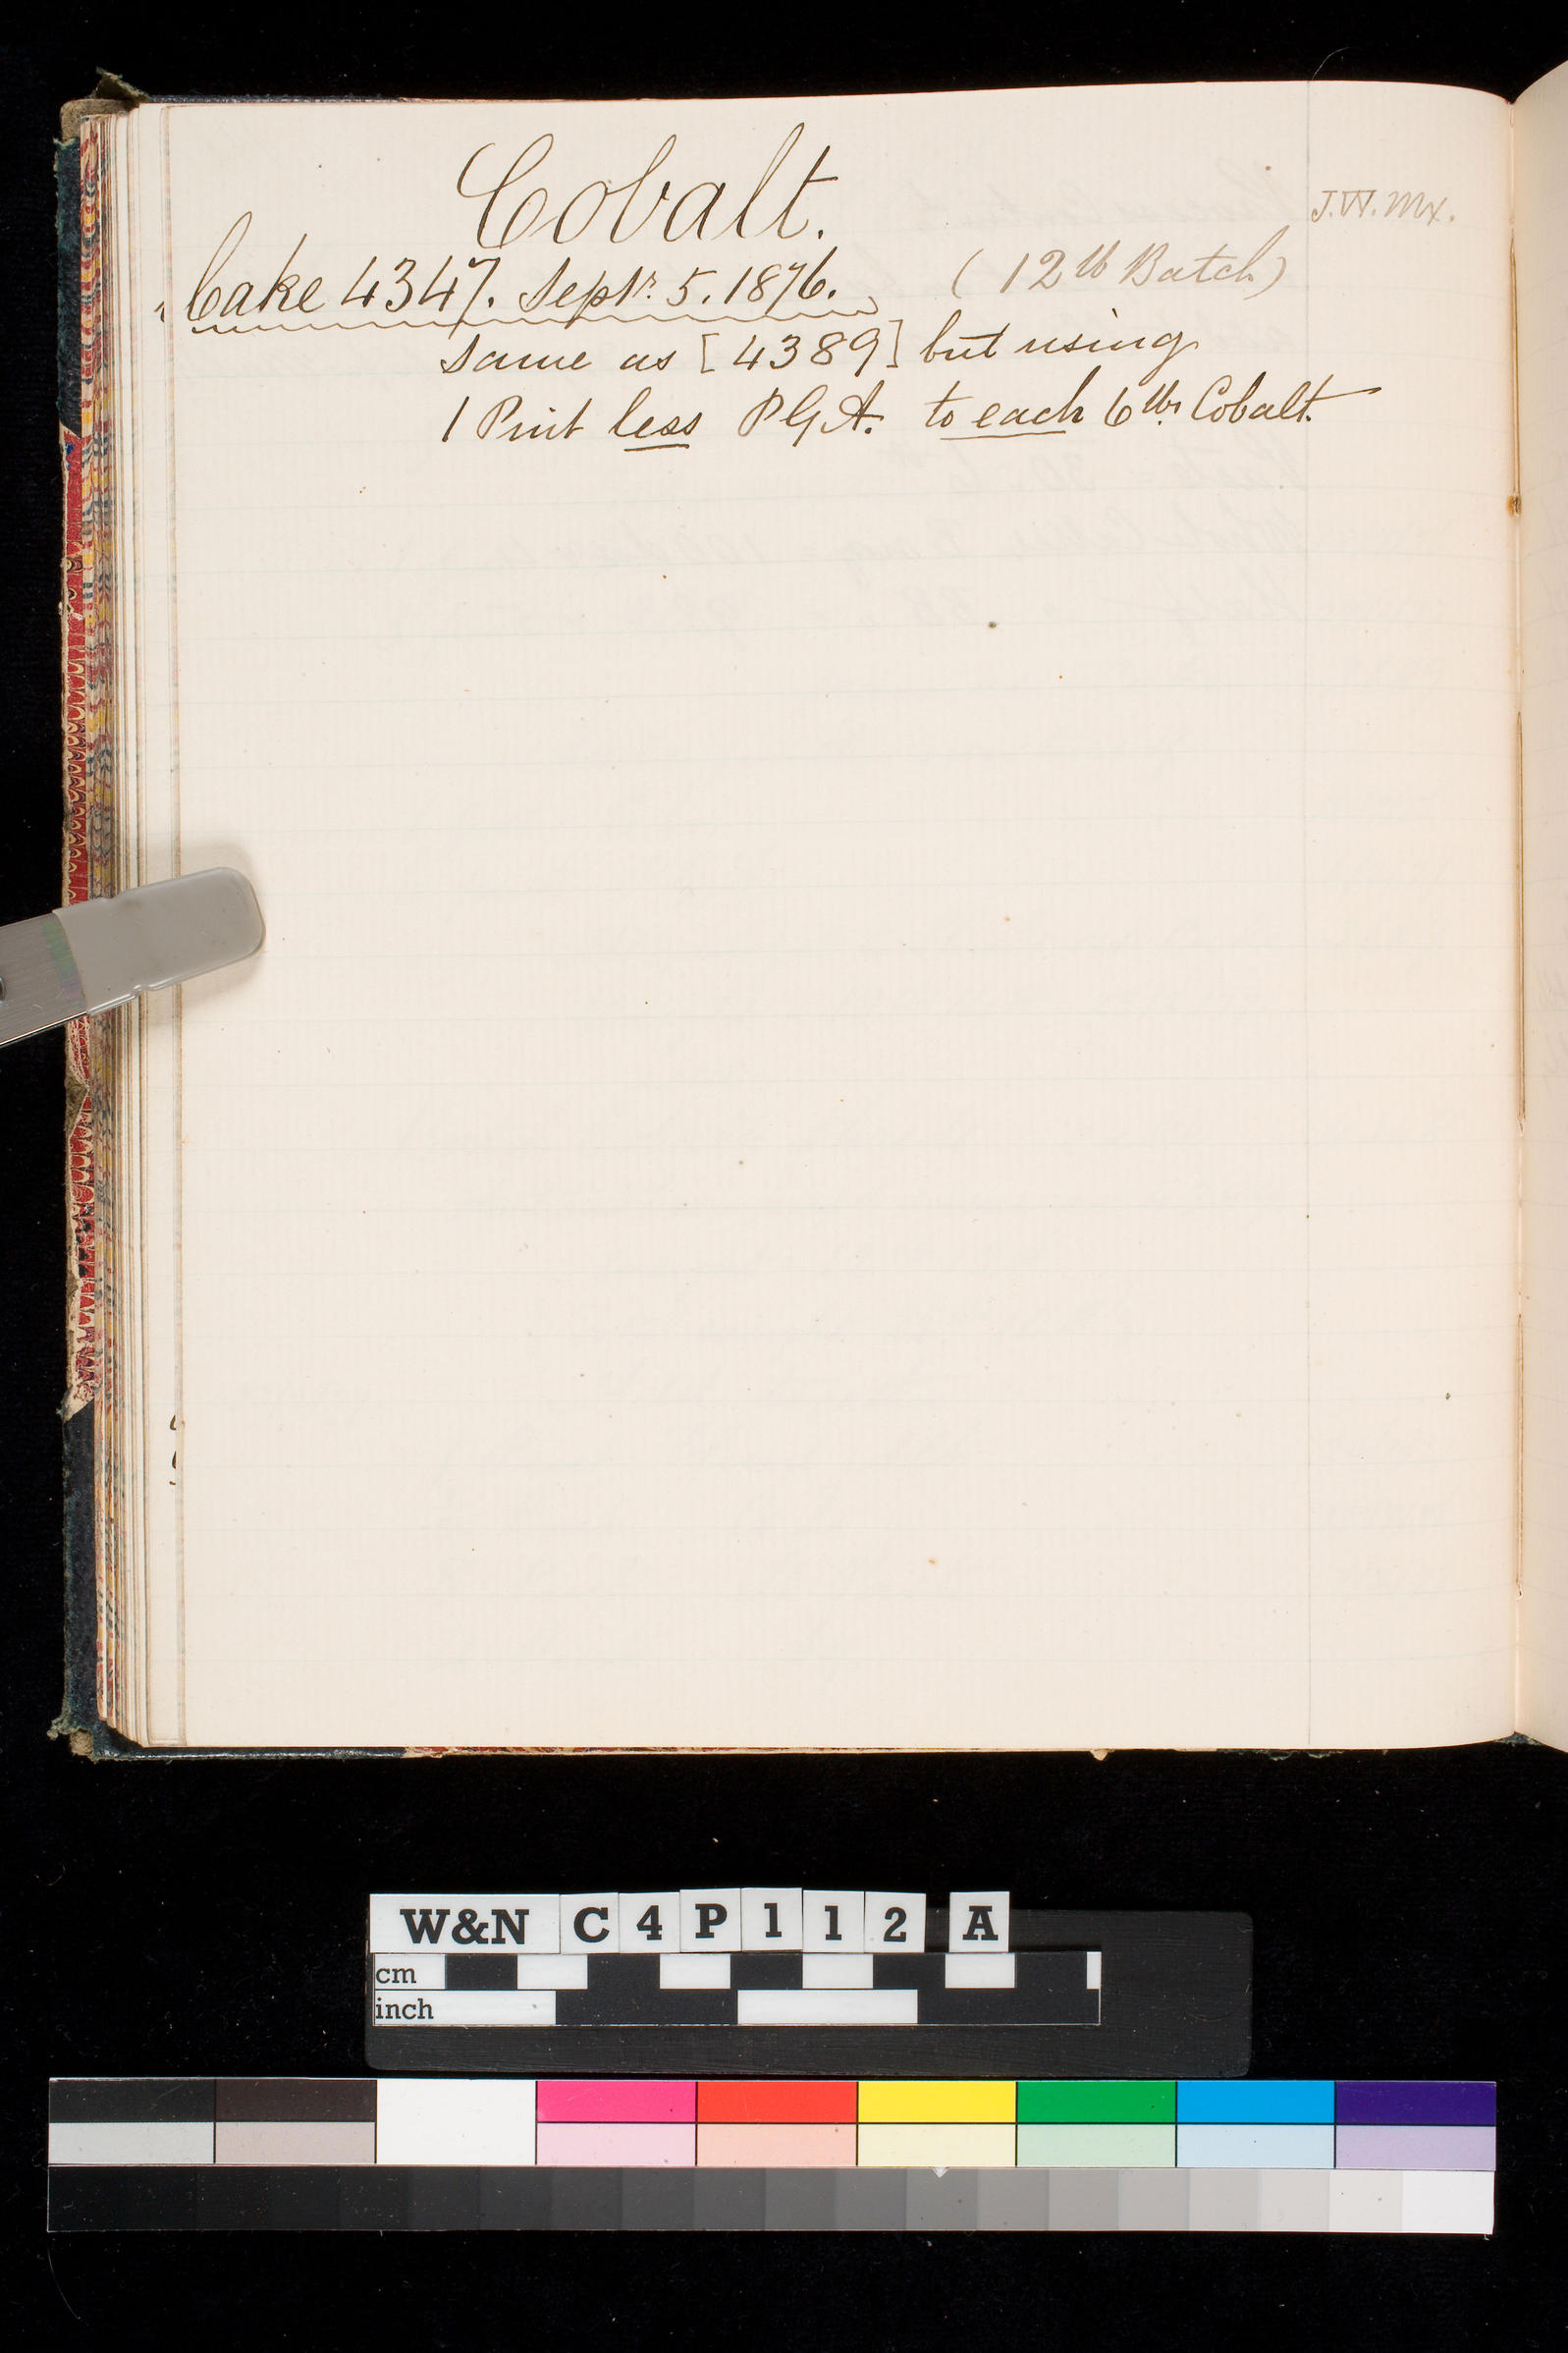 Cobalt.
J.W. Mx.
Cake 4347. Septr. 5. 1876. (12 lb Batch)
Same as [4389] but using
1 Pint less P G A. to each 6 lbs. Cobalt.
W&N C4P112 A
cm
inch